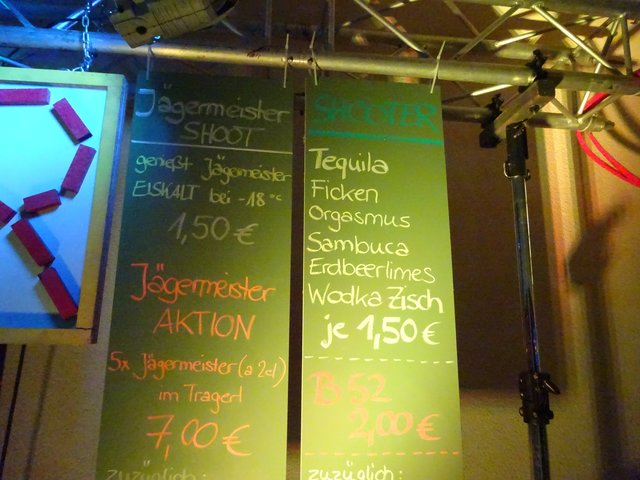 Jägermeister
SHOOT
genießt Jägermeister
EISKALT bei -18°C
1,50 €
Jägermeister
AKTION
5x Jägermeister (a 2cl)
im Tragerl
7,00 €
zuzüglich:
SHOOTER
Tequila
Ficken
Orgasmus
Sambuca
Erdbeerlimes
Wodka Zisch
je 1,50 €
B52
2,00 €
zuzüglich: